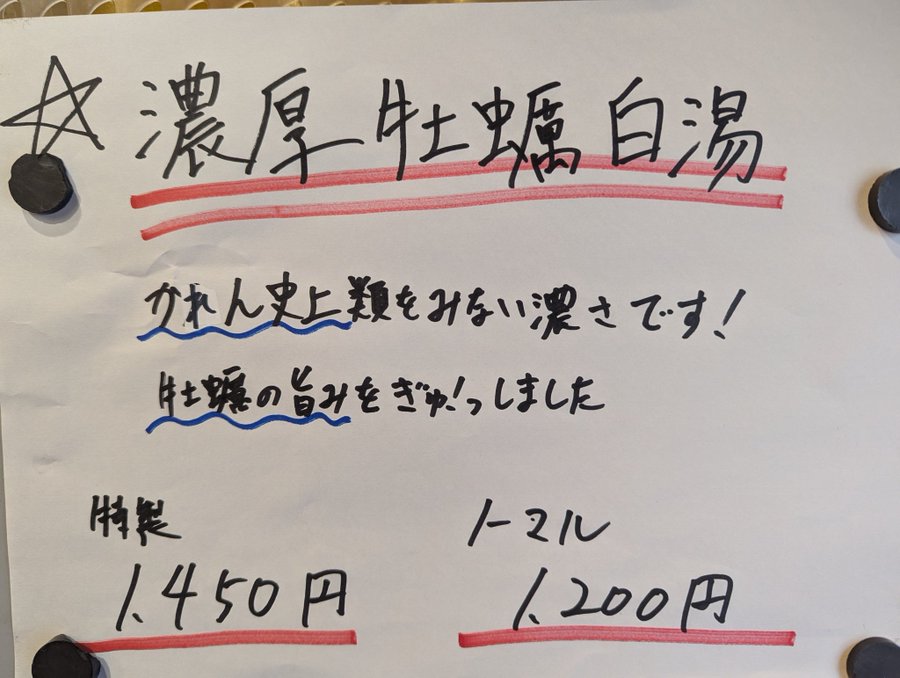 ☆ 濃厚牡蠣白湯
かれん史上類をみない濃さです!
牡蠣の旨みをぎゅ!っしました
特製 ノーマル
1.450円 1.200円